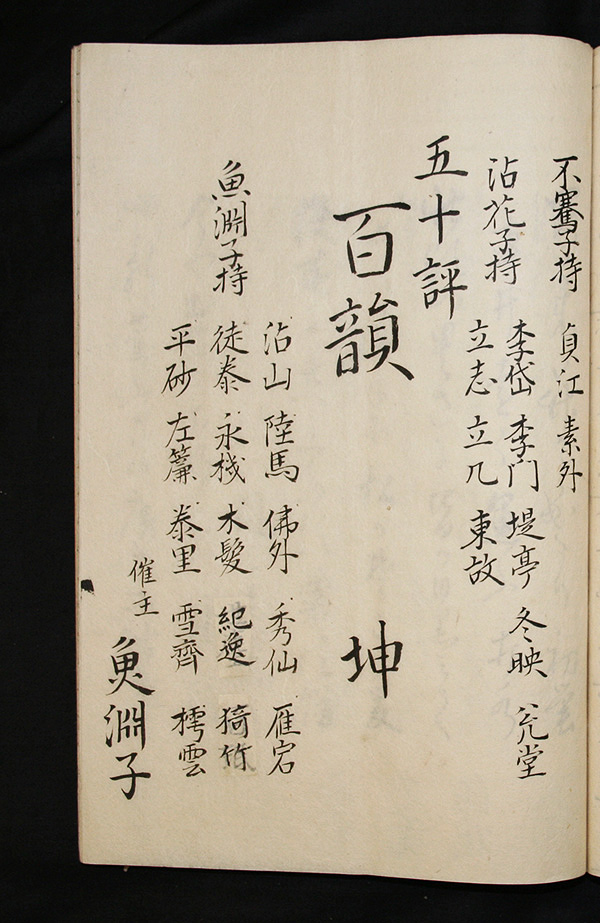 不騫子持 貞江 素外
沾花子持 李岱 李門 堤亭 冬映 尭堂
立志 立几 東故
五十評
百韻 坤
沾山 陸馬 佛外 秀仙 雁宕
魚淵子持 徒泰 永棧 木髪 紀逸 猗竹
平砂 左簾 泰里 雪齊 樗雲
催主 魚淵子